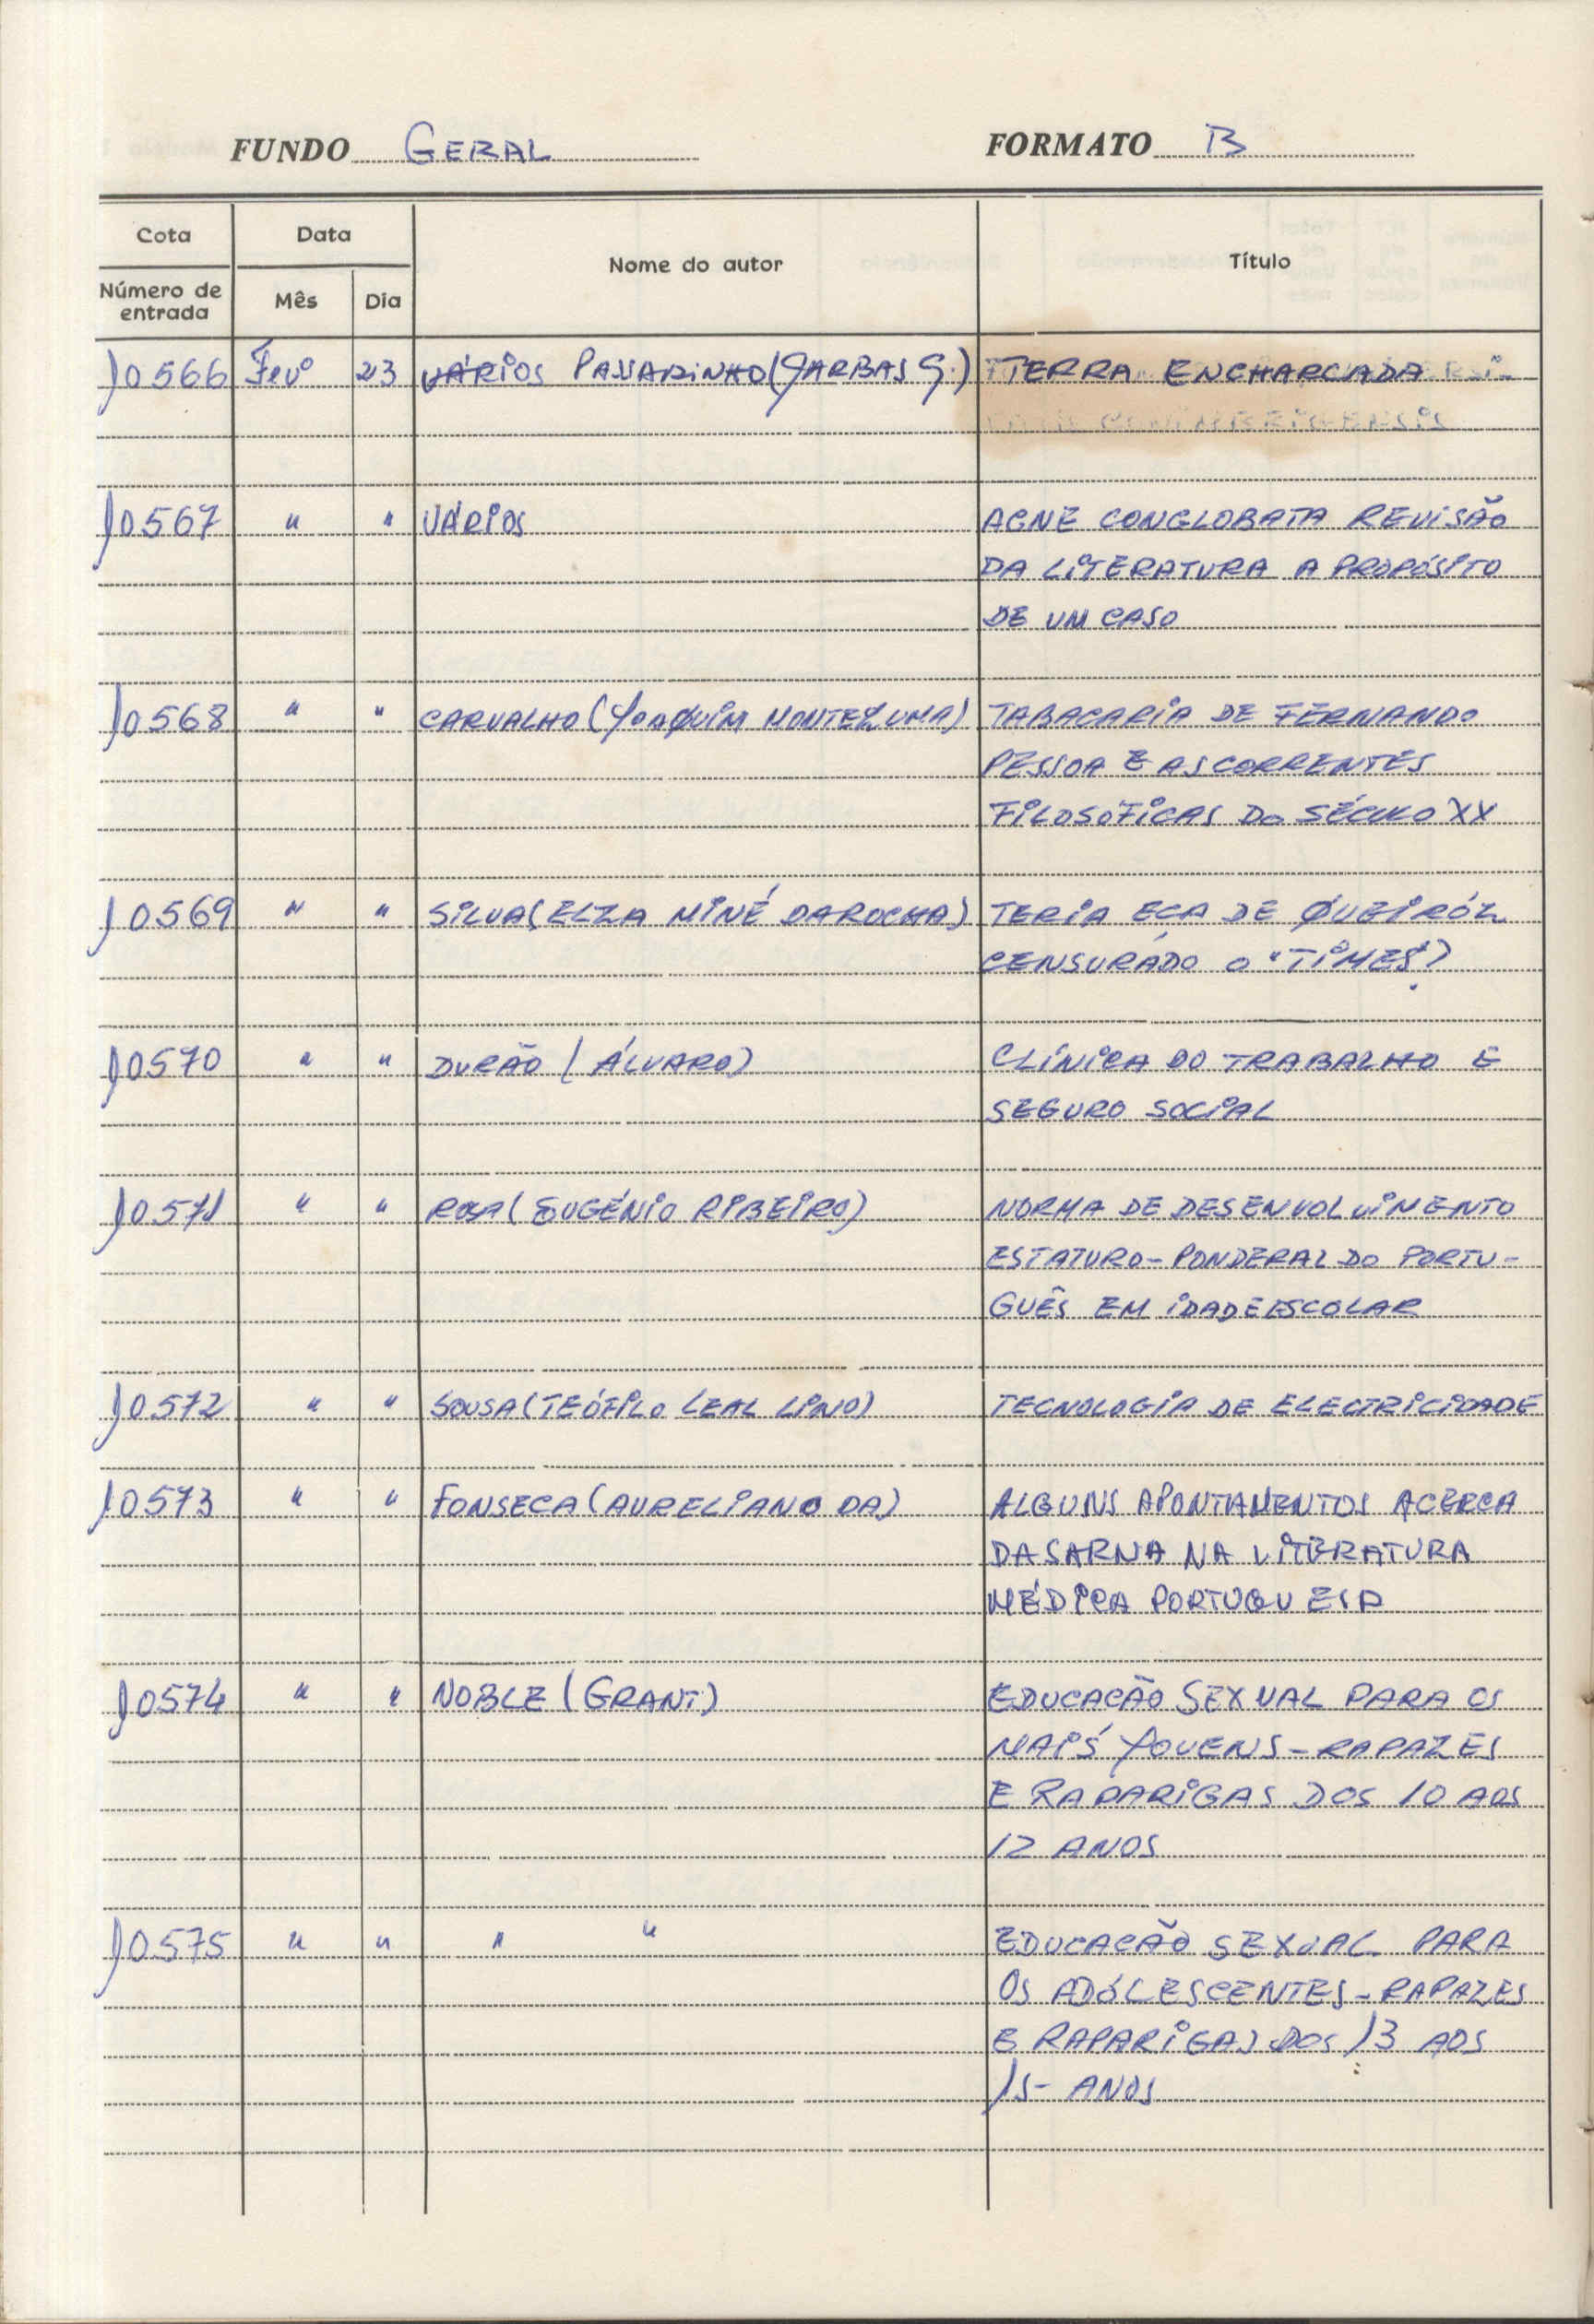 FUNDO GERAL FORMATO B
Cota Data Nome do autor Título
Número de entrada Mês Dia
10566 Fevº 23 VÁRIOS PASSARINHO (JARBAS G.) TERRA ENCHARCADA
10567 " " VÁRIOS ACNE CONGLOBATA REVISÃO
DA LITERATURA A PROPÓSITO
DE UM CASO
10568 " " CARVALHO (JOAQUIM MONTEZUMA) TABACARIA DE FERNANDO
PESSOA E AS CORRENTES
FILOSÓFICAS DO SÉCULO XX
10569 " " SILVA (ELZA MINÉ DA ROCHA) TERIA EÇA DE QUEIRÓZ
CENSURADO O "TIMES"?
10570 " " DURÃO (ÁLVARO) CLÍNICA DO TRABALHO E
SEGURO SOCIAL
10571 " " ROSA (EUGÉNIO RIBEIRO) NORMA DE DESENVOLVIMENTO
ESTATURO-PONDERAL DO PORTU-
GUÊS EM IDADE ESCOLAR
10572 " " SOUSA (TEÓFILO LEAL LINO) TECNOLOGIA DE ELECTRICIDADE
10573 " " FONSECA (AURELIANO DA) ALGUNS APONTAMENTOS ACERCA
DA SARNA NA LITERATURA
MÉDICA PORTUGUESA
10574 " " NOBLE (GRANT) EDUCAÇÃO SEXUAL PARA OS
MAIS JOVENS - RAPAZES
E RAPARIGAS DOS 10 AOS
12 ANOS
10575 " " " " EDUCAÇÃO SEXUAL PARA
OS ADÓLESCENTES - RAPAZES
E RAPARIGAS DOS 13 AOS
15 - ANOS